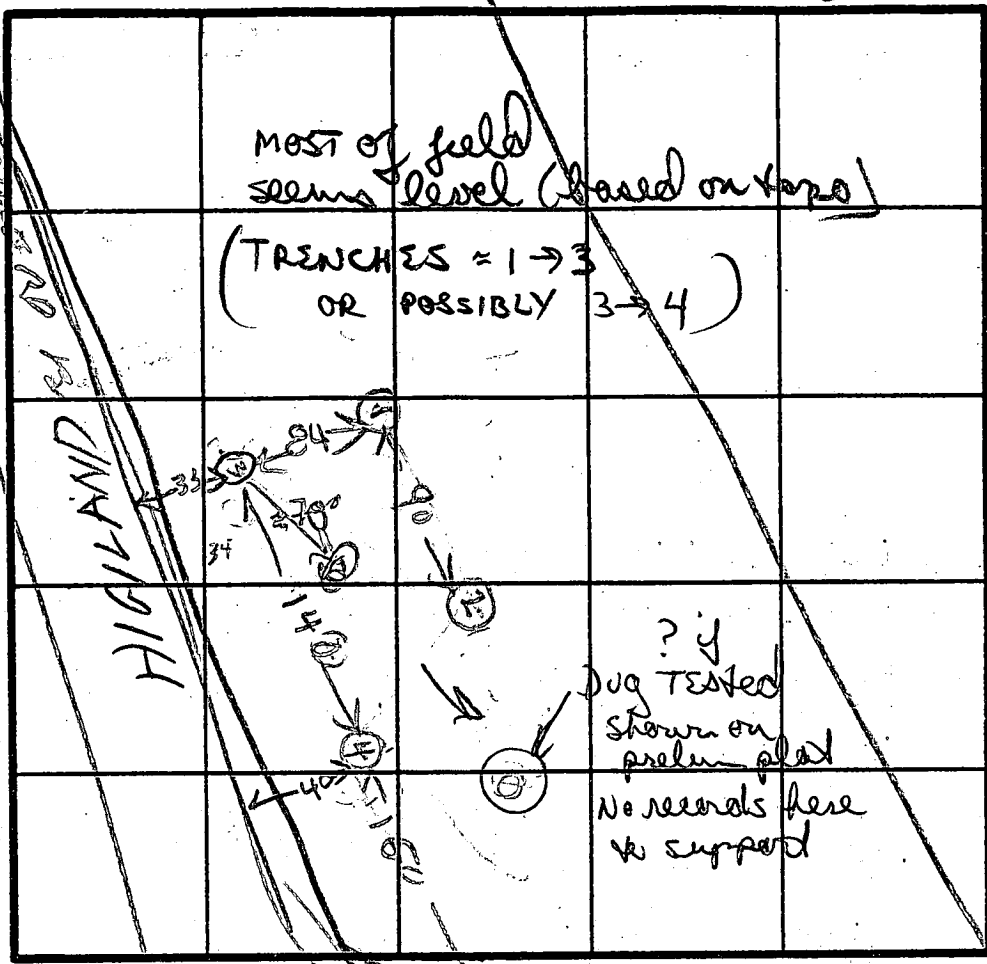 MOST OF field
seems level (based on topo)
(TRENCHES ≈ 1 → 3
OR POSSIBLY 3 → 4)
HIGHLAND
33
84
70'
34
140
40
? if
Dug TESTED
shown on
prelim plat
No records here
to support